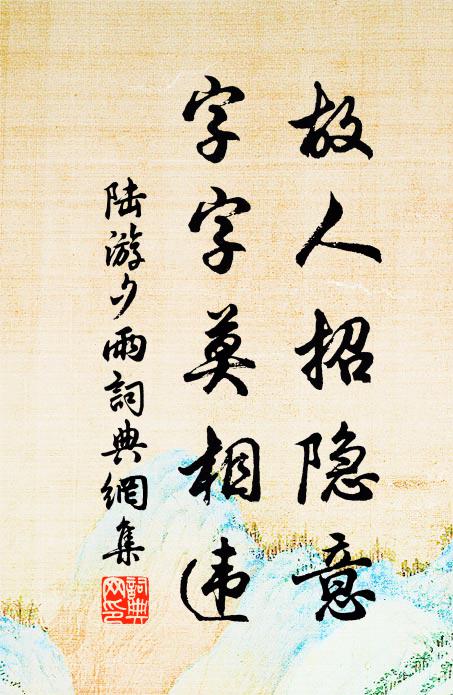 故人招隐意
字字莫相违
陆游夕雨詞典網集
詞典网印